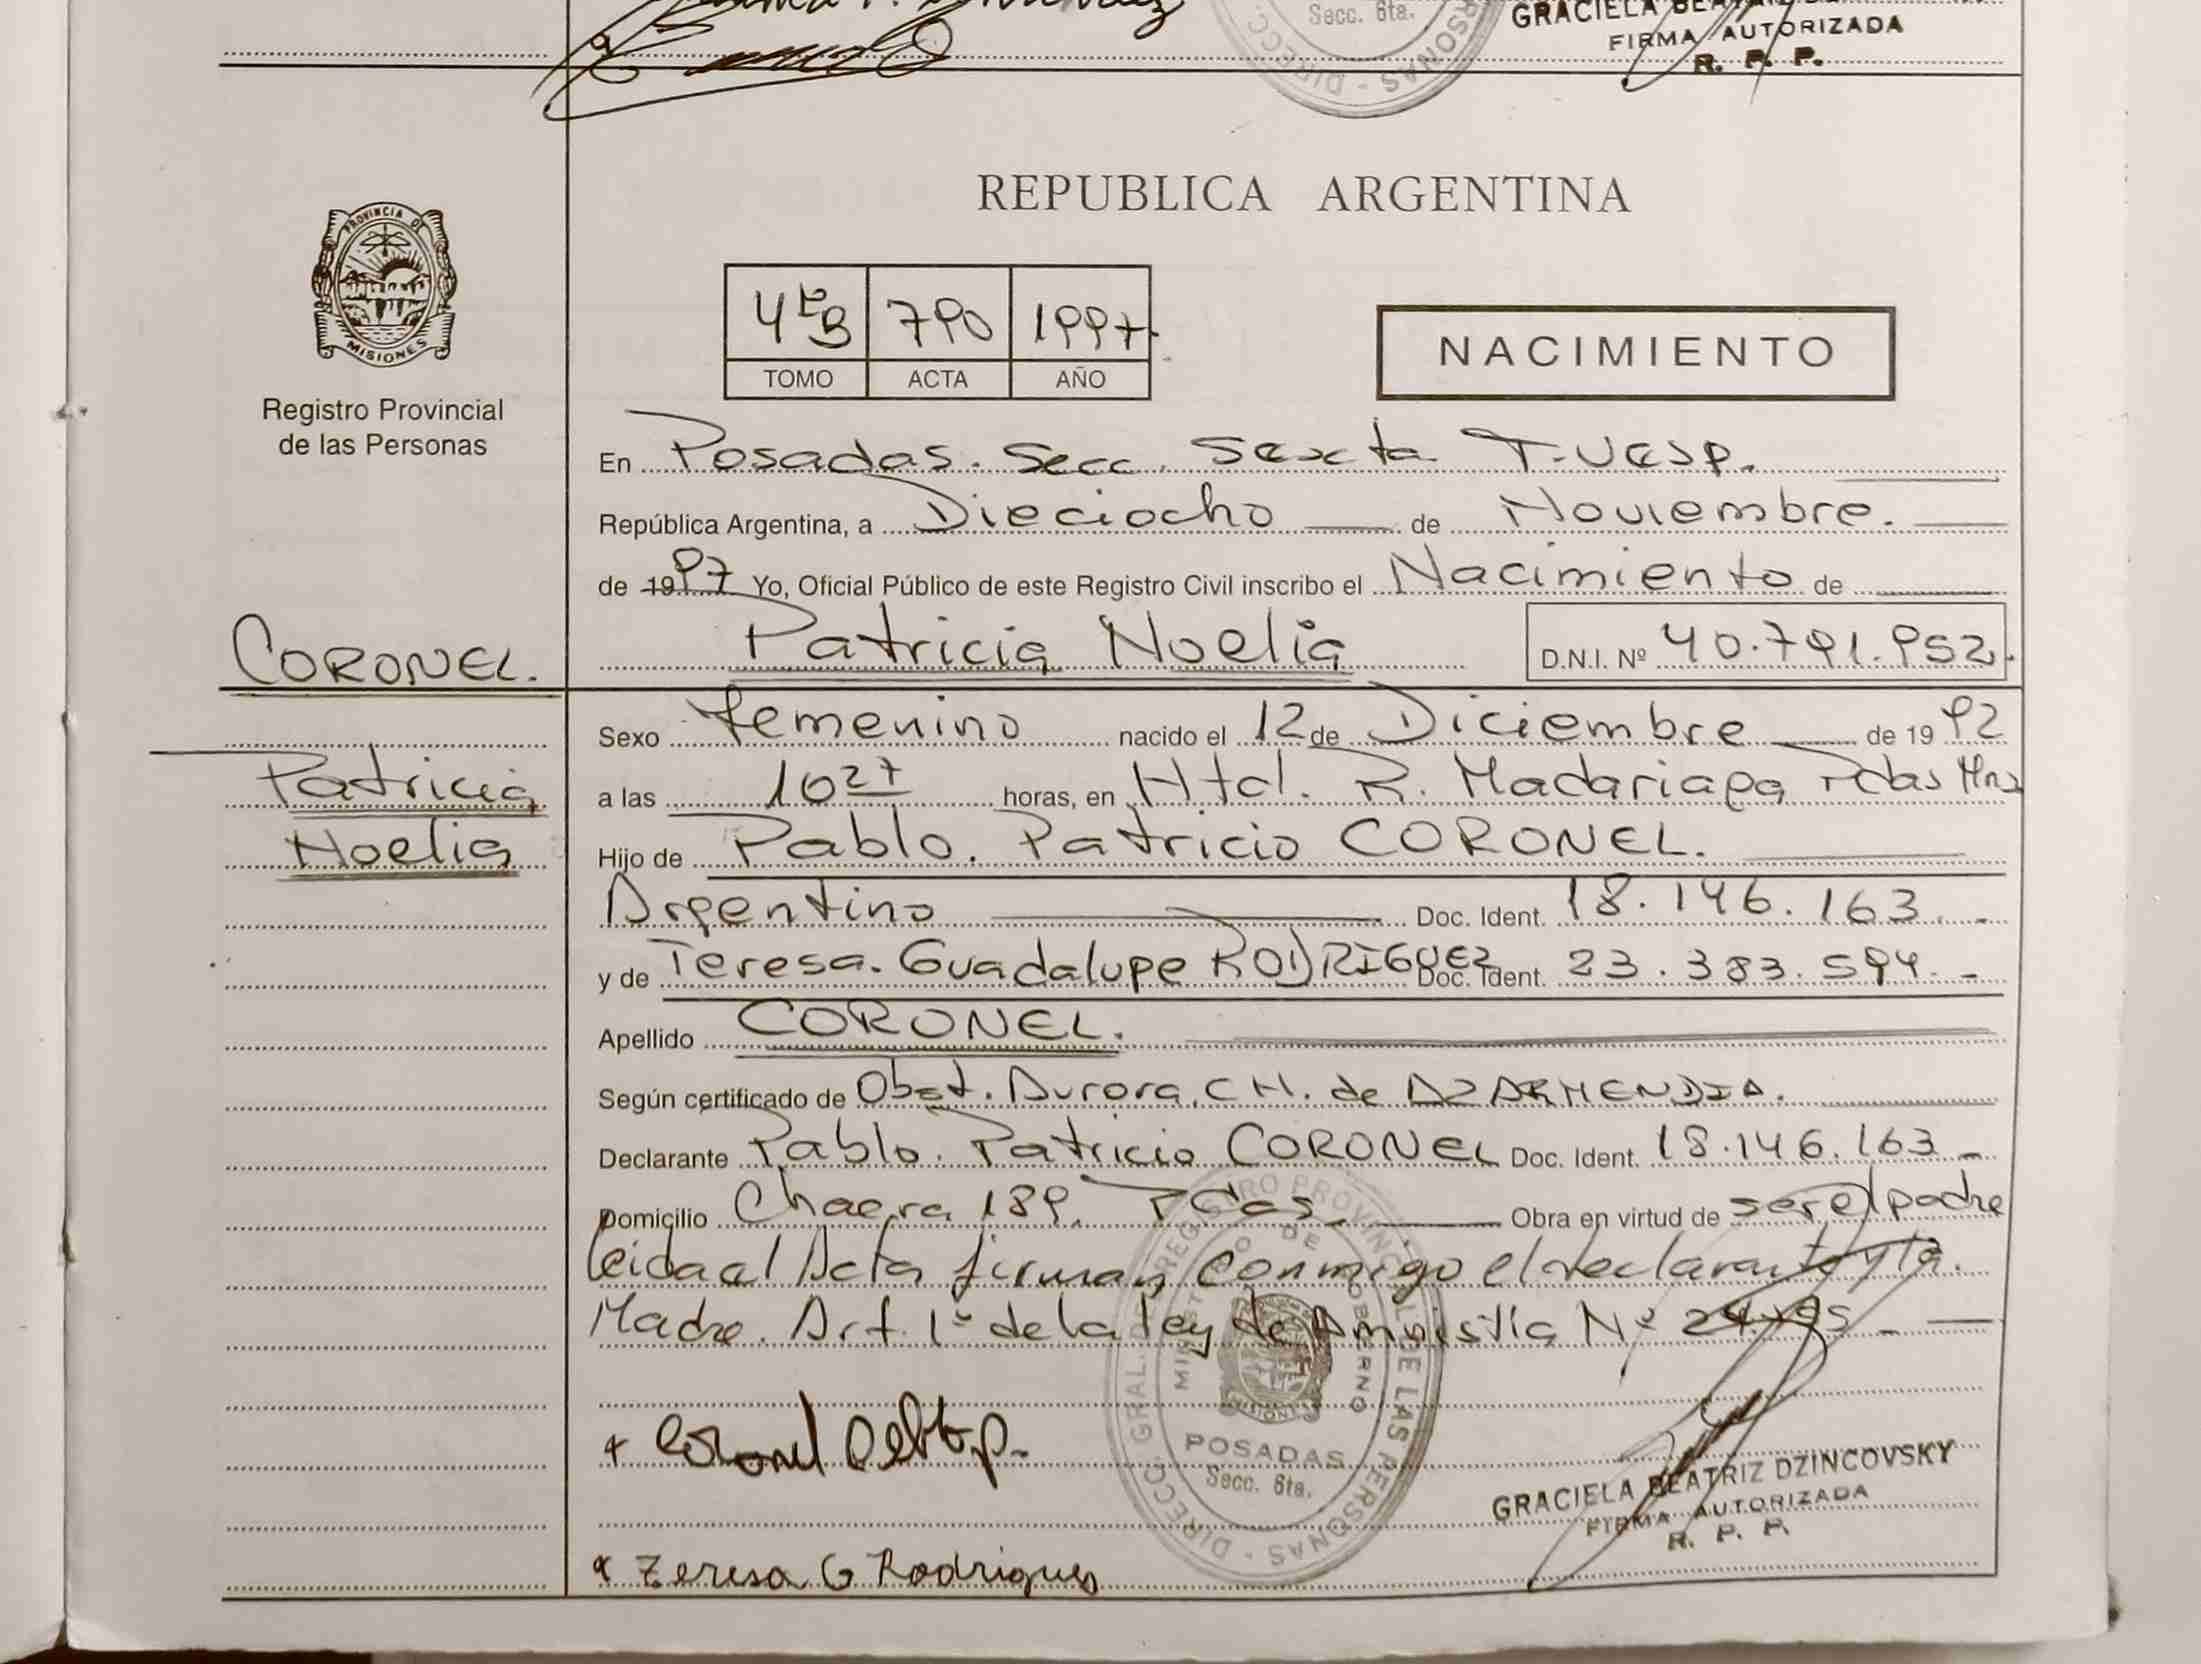 Secc. 6ta.
DIRECC.
PERSONAS
GRACIELA
FIRMA AUTORIZADA
R. P. P.
REPUBLICA ARGENTINA
PROVINCIA DE
MISIONES
Registro Provincial
de las Personas
790 1997
TOMO ACTA AÑO
NACIMIENTO
En Posadas. Secc. Sexta T. Vesp.
República Argentina, a Dieciocho de Noviembre.
de 1997 Yo, Oficial Público de este Registro Civil inscribo el Nacimiento de
CORONEL. Patricia Noelia D.N.I. Nº 40.791.952.
Sexo Femenino nacido el 12 de Diciembre de 1992
Patricia
a las 10 27 horas, en Htal. R. Madariaga Pdas Mns
Noelia
Hijo de Pablo. Patricio CORONEL.
Argentino Doc. Ident. 18.146.163.-
y de Teresa. Guadalupe RODRIGUEZ Doc. Ident. 23.383.594.-
Apellido CORONEL.
Según certificado de Obst. Aurora. CH. de AZARMENDIA.
Declarante Pablo. Patricio CORONEL Doc. Ident. 18.146.163-
Domicilio Chacra 189. Pdas. Obra en virtud de ser el padre
leida el Acta firman conmigo el declarante y la
Madre. Art. 1º de la Ley de Amnistía Nº
DIRECC. GRAL. REGISTRO PROVINCIAL DE LAS PERSONAS
MINISTERIO DE GOBIERNO
MISIONES
POSADAS
Secc. 6ta.
Coronel
GRACIELA BEATRIZ DZINCOVSKY
FIRMA AUTORIZADA
R. P. P.
Teresa G Rodrigues